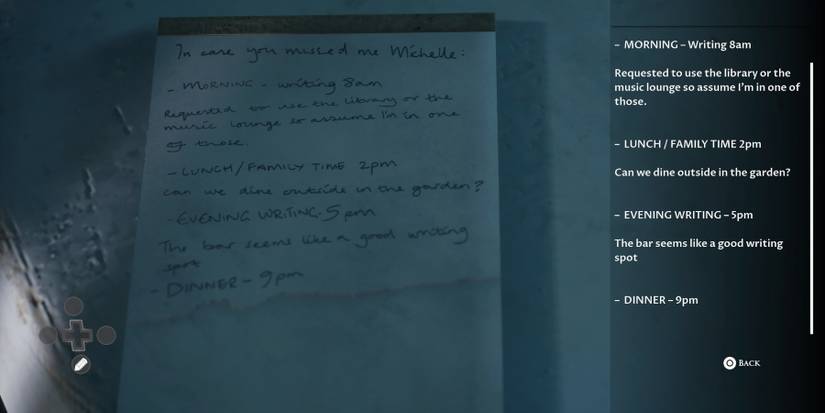 In case you missed me Michelle:
- MORNING - writing 8am
Requested to use the library or the
music lounge so assume I'm in one
of those.
- LUNCH/FAMILY TIME 2pm
can we dine outside in the garden?
- EVENING WRITING-5pm
The bar seems like a good writing
spot
- DINNER - 9pm
– MORNING – Writing 8am
Requested to use the library or the
music lounge so assume I'm in one of
those.
– LUNCH / FAMILY TIME 2pm
Can we dine outside in the garden?
– EVENING WRITING – 5pm
The bar seems like a good writing
spot
– DINNER – 9pm
BACK